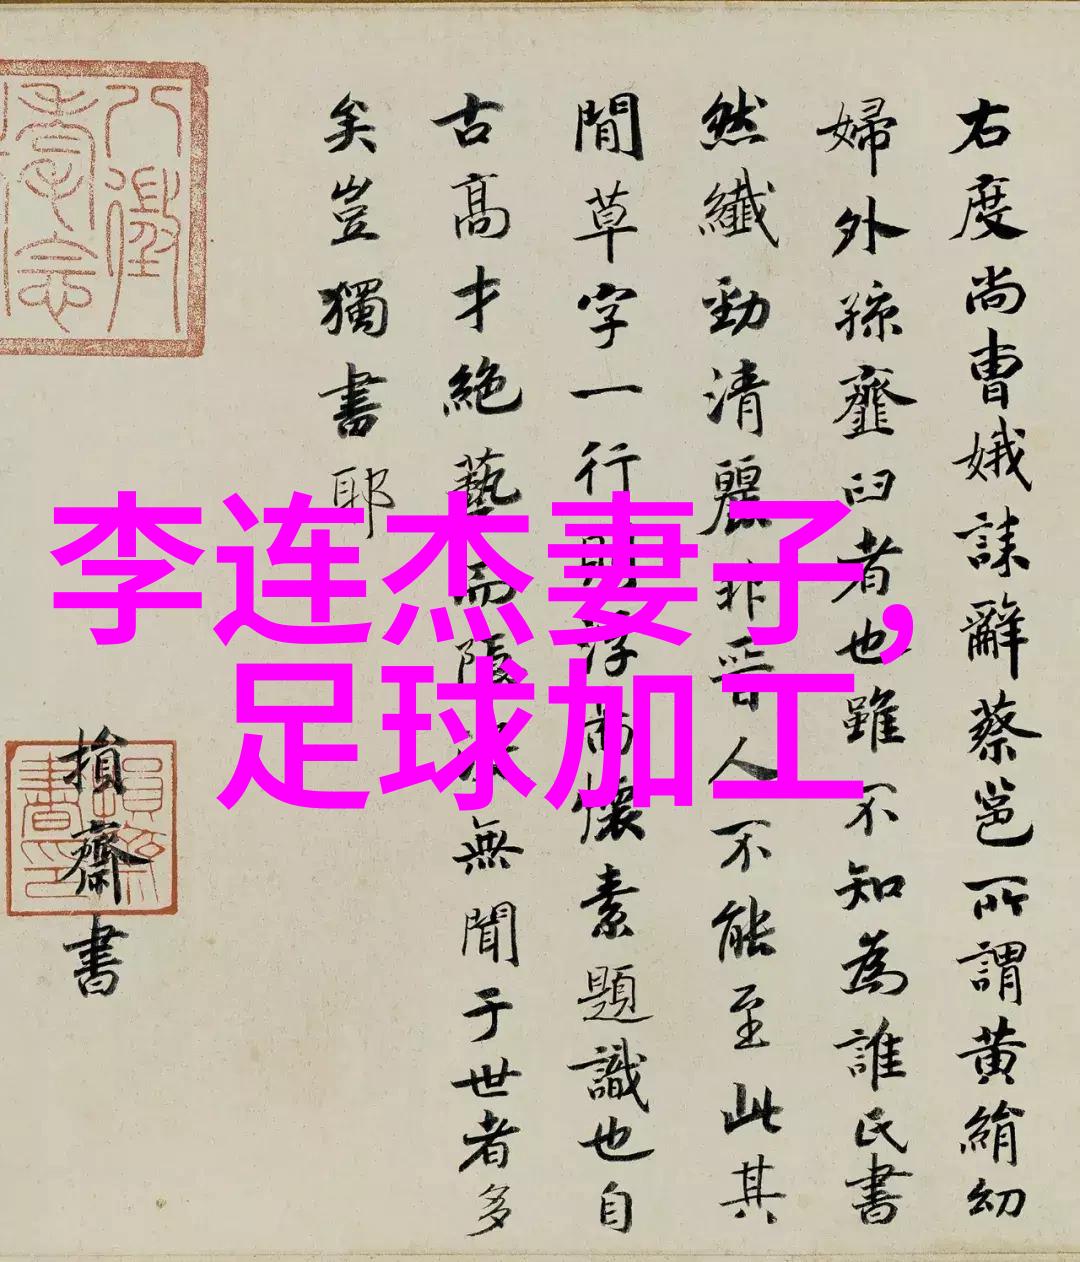 右度尚曹娥誄辭蔡邕所謂黄絹幼
婦外孫虀臼者也雖不知為誰氏書
然纖勁清麗非晉人不能至此其
閒草字一行則浮而懐素題識也自
古高才絶藝而隱没無聞于世者多
矣豈獨書耶
損齋書
李连杰妻子,
足球加工